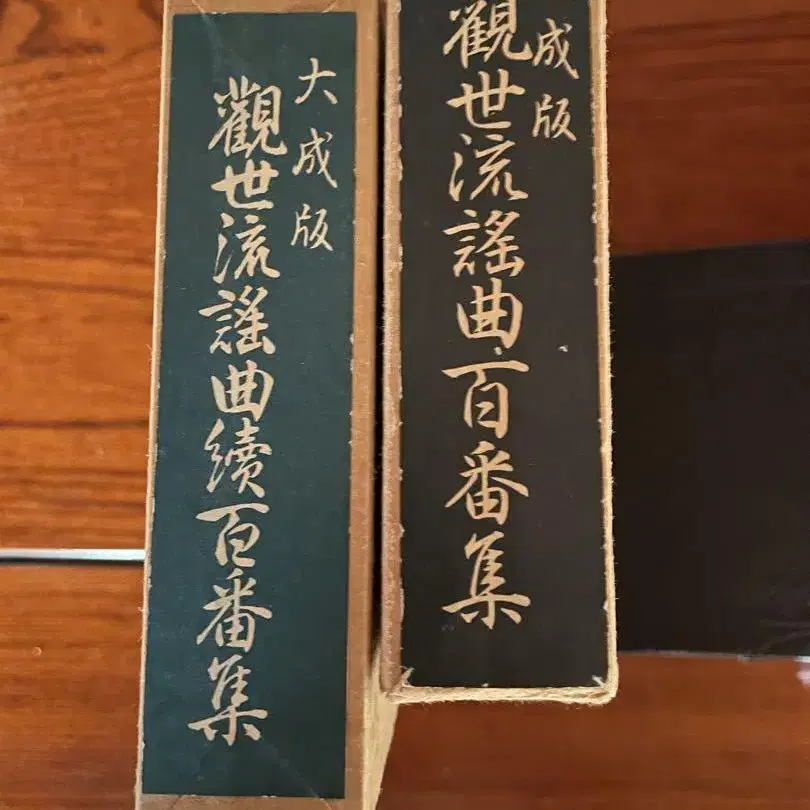 大成版
觀世流謠曲續百番集
成版
觀世流謠曲百番集